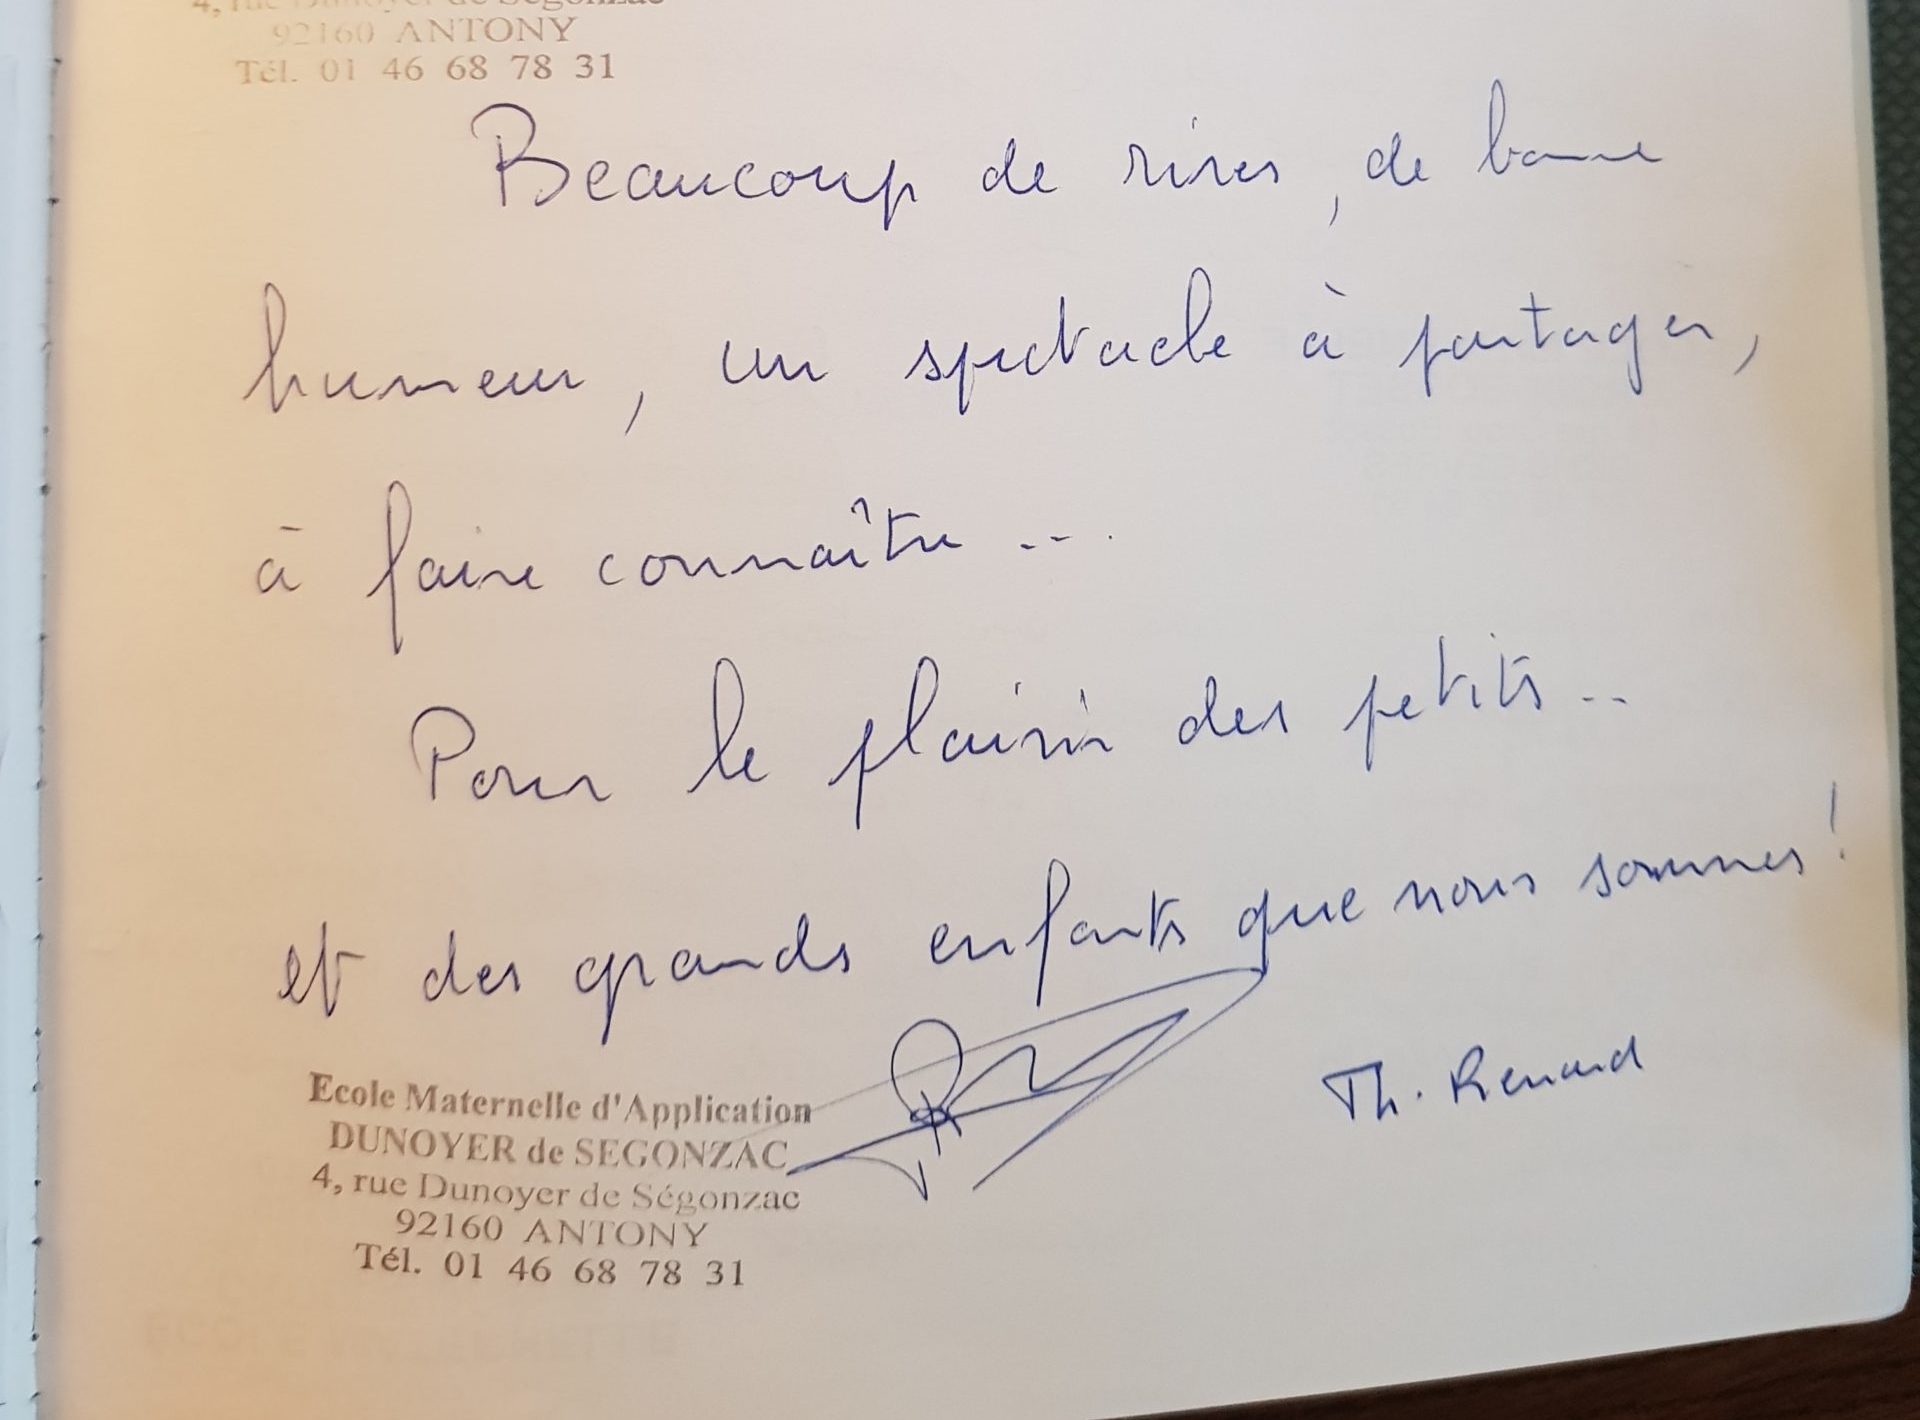 4, rue Dunoyer de Ségonzac
92160 ANTONY
Tél. 01 46 68 78 31
Beaucoup de rires, de bonne
humeur, un spectacle à partager,
à faire connaître ...
Pour le plaisir des petits ..
et des grands enfants que nous sommes !
Th. Renard
Ecole Maternelle d'Application
DUNOYER de SEGONZAC
4, rue Dunoyer de Ségonzac
92160 ANTONY
Tél. 01 46 68 78 31